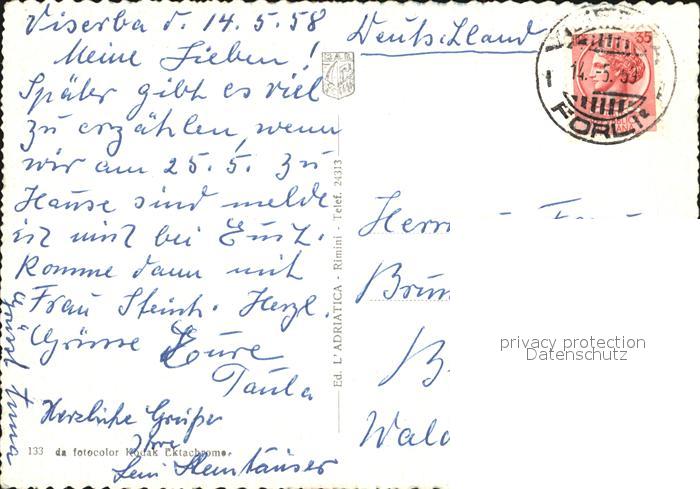 Viserba d. 14.5.58
Meine Lieben!
Später gibt es viel
zu erzählen, wenn
wir am 25.5. zu
Hause sind melde
ich mich bei Euch.
Komme dann mit
Frau Steinh. Herzl.
Grüsse Eure
Paula
Herzliche Grüße
Ihre
Leni
133 da fotocolor Kodak Ektachrome.
Ed. L'ADRIATICA - Rimini - Telef. 24313
Deutschland
35
14.-5.
FORLI
Herrn
privacy protection
Datenschutz